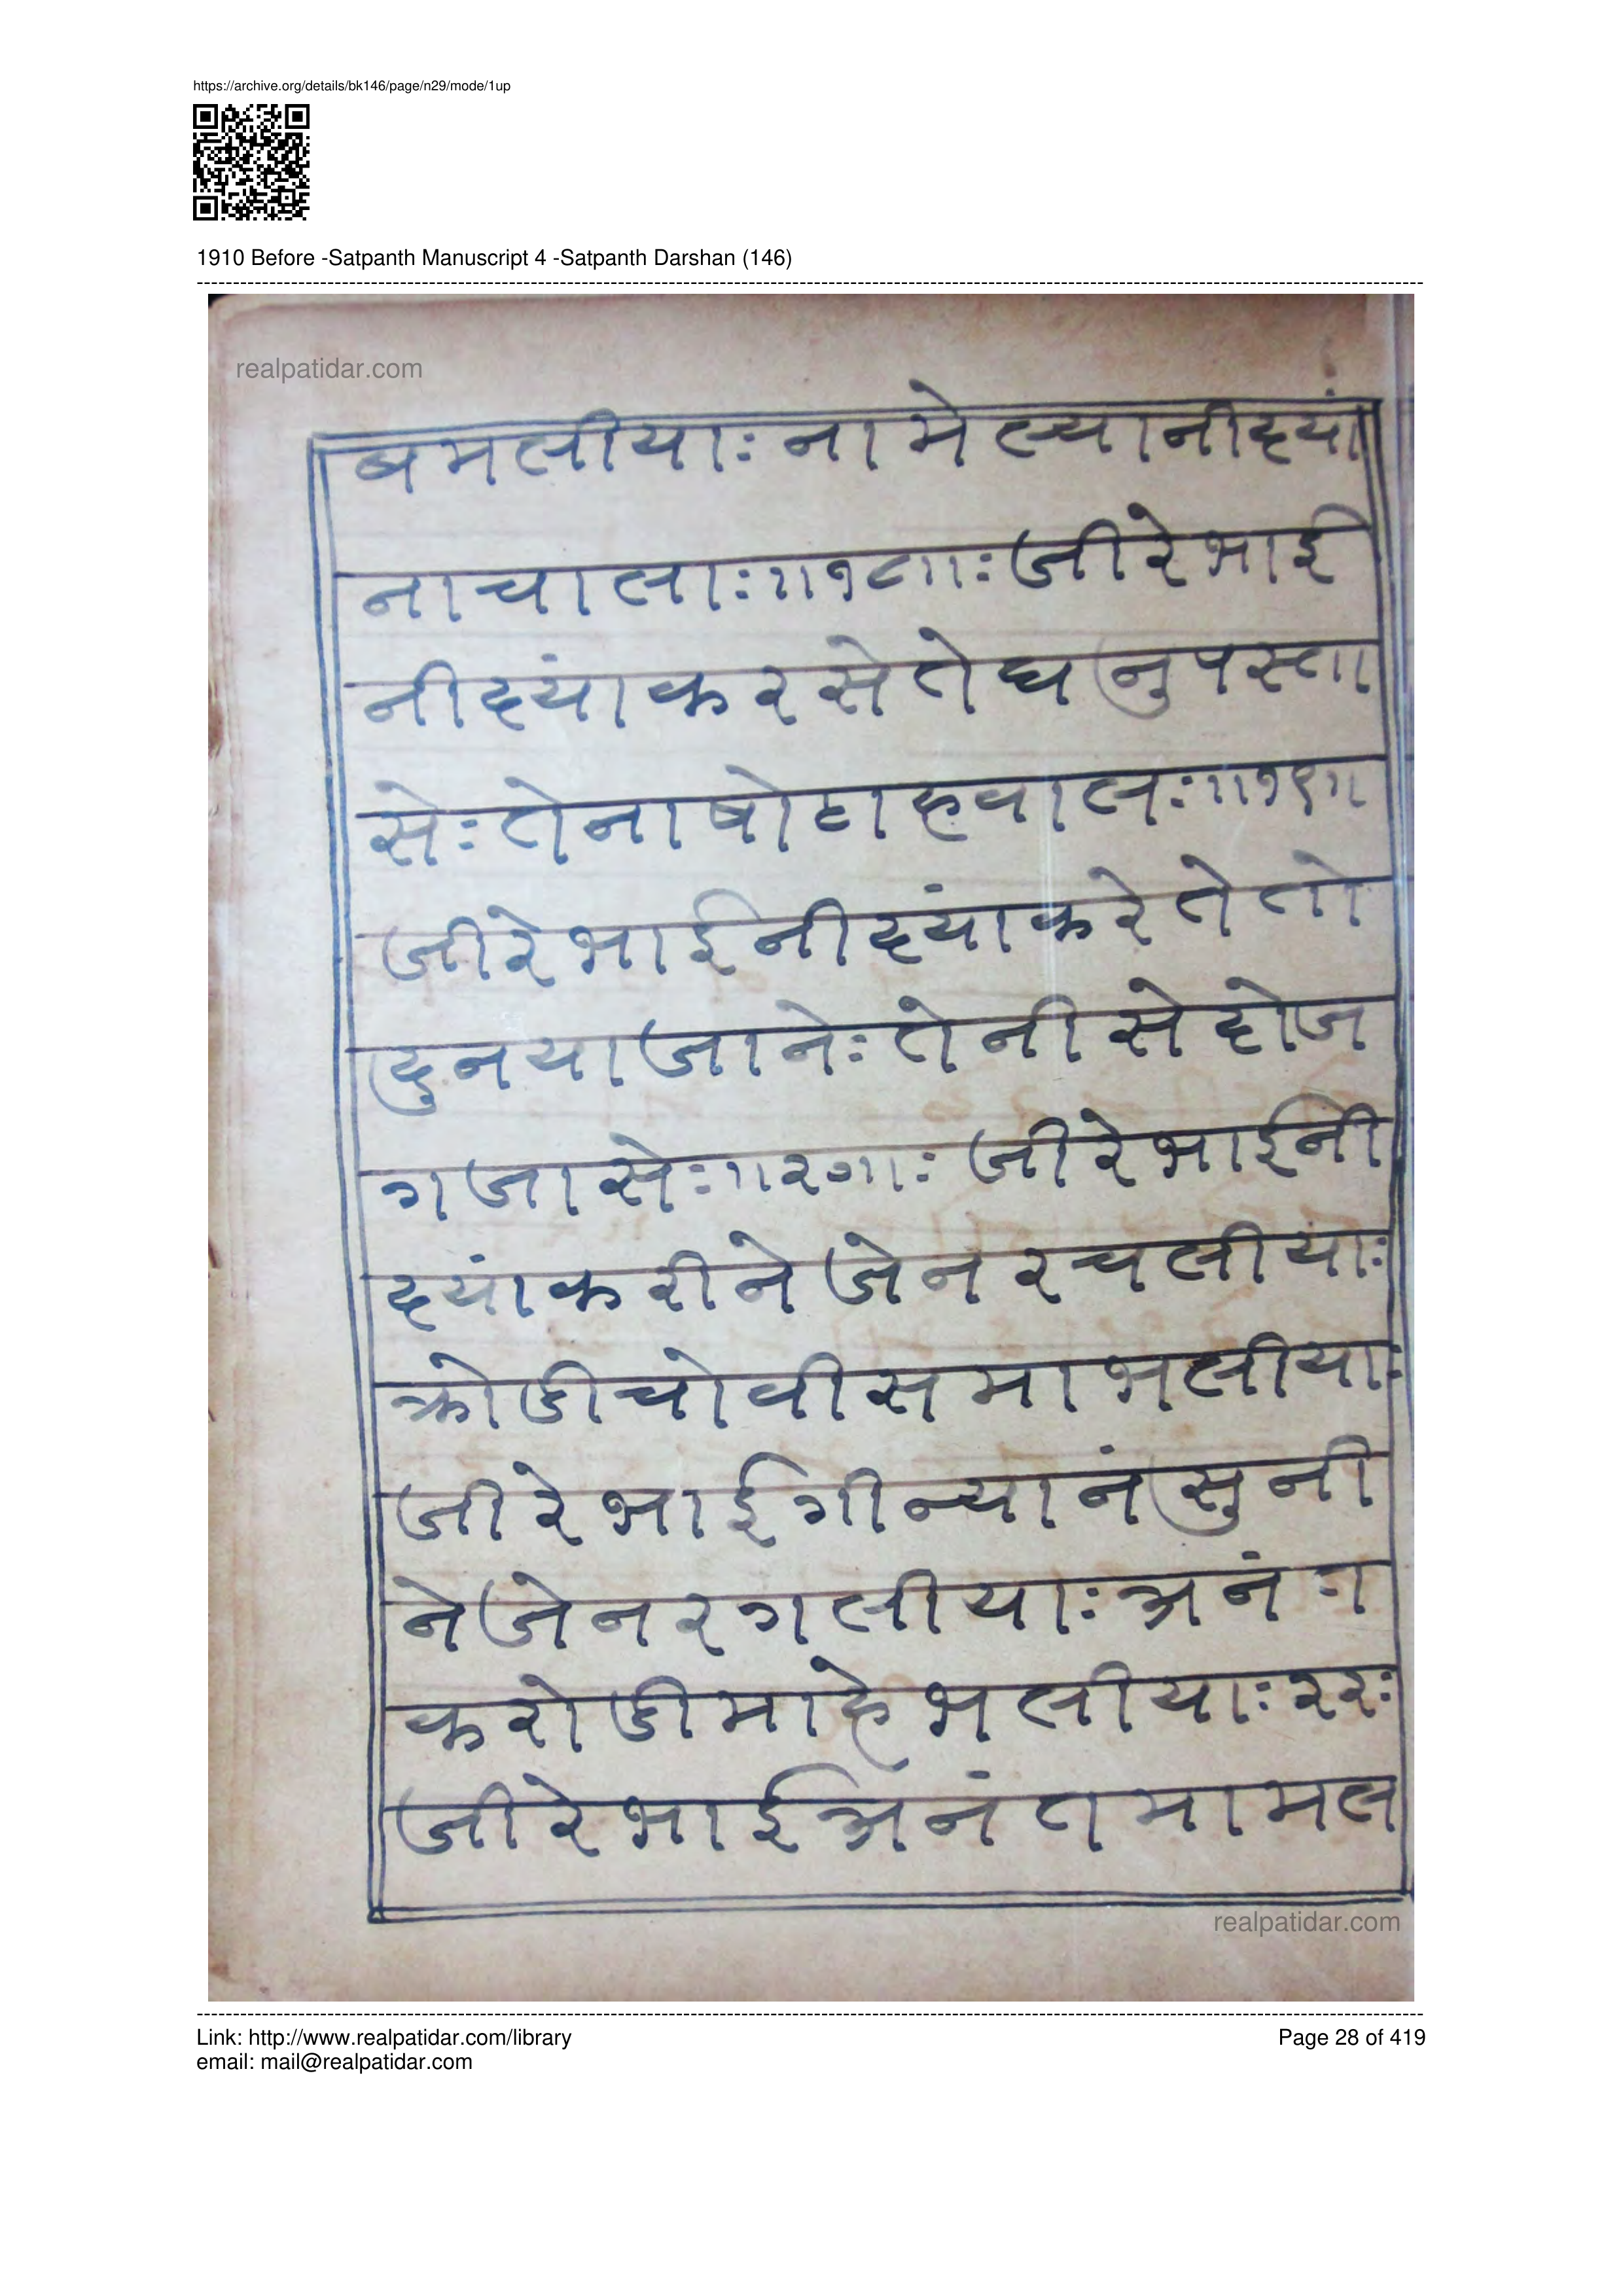 https://archive.org/details/bk146/page/n29/mode/1up
1910 Before -Satpanth Manuscript 4 -Satpanth Darshan (146)
realpatidar.com
बमलीयाः ना मे ल्यानीद्यां
नाचालाः॥१८॥ः जीरेभाई
नीद्यांकरसेतेघनुपस्ता
सेः तेनाषोटाहवालः॥१९॥
जीरेभाईनीद्यांकरेतेतो
दुनयाजानेः तेनीसेहोज
गजासेः॥२०॥ः जीरेभाईनी
द्यांकरीनेजेनरचलीयाः
क्रोडीचोवीसमाभलीयाः
जीरेभाईगीन्यानंसुनी
नेजेनरगलीयाः अनंग
करोडीमाहेभलीयाः २२ः
जीरेभाईअनंतमामल
realpatidar.com
Link: http://www.realpatidar.com/library
Page 28 of 419
email: mail@realpatidar.com